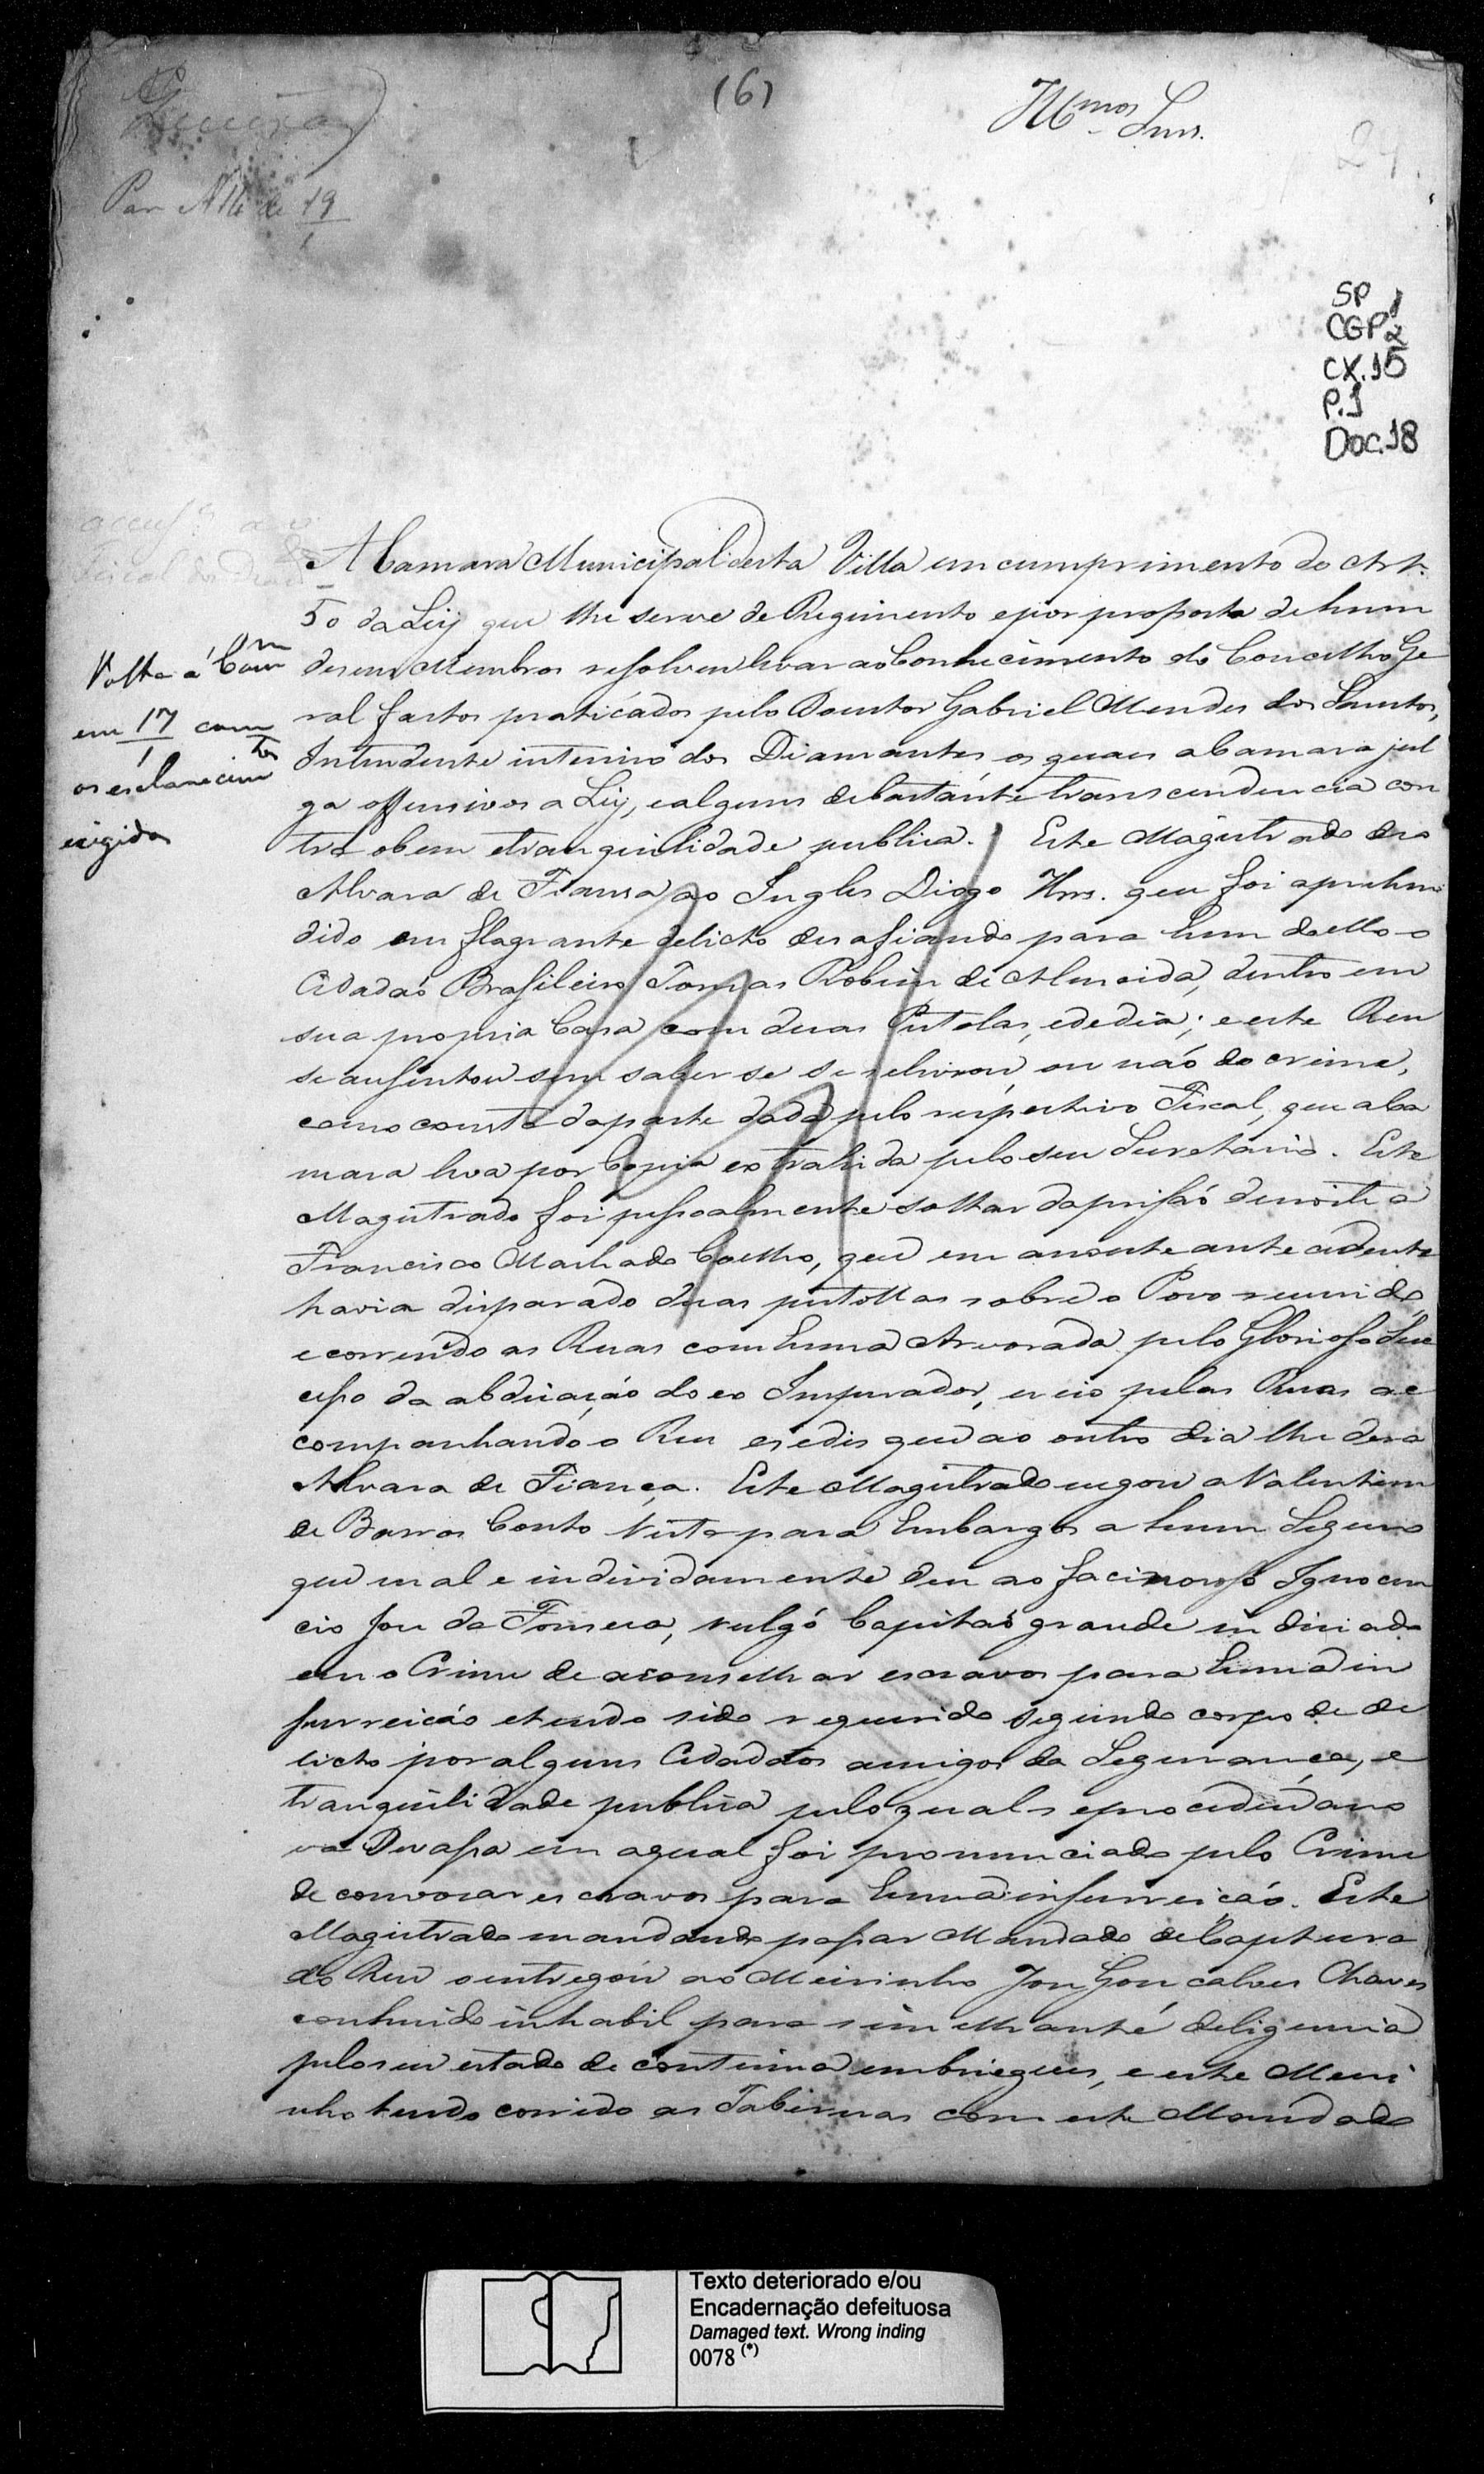 (6)
Ill.mos Snrs.
Par N 16 de 19
1
SP 1
CGP 2
CX.15
P.1
Doc.18
A Camara Municipal desta Villa em cumprimento do Art.
50 da Ley que lhe serve de Regimento e por proposta de hum
de seus Membros resolveu levar ao Conhecimento do Concelho Ge
ral factos praticados pelo Doutor Gabriel Mendes dos Santos,
Intendente interino dos Diamantes os quaes a Camara jul
ga offensivos a Ley, e alguns de bastante transcendencia con
tra o bem e tranquilidade publica. Este Magistrado deo
Alvara de Fiansa ao Ingles Diogo Hrs. que foi aprehen
dido em flagrante delicto desafiando para hum duello o
Cidadaõ Brasileiro Tomas Robim de Almeida, dentro em
sua propria Casa com duas Pistolas, e de dia; e este Reu
se ausentou sem saber se se relivrou, ou naõ do crime,
como consta da parte dada pelo respectivo Fiscal, que a Ca
mara leva por Copia extrahida pelo seu Secretario. Este
Magistrado foi pessoalmente soltar da prisaõ de noite a
Francisco Machado Coelho, que em a noute antecedente
havia disparado duas pistollas sobre o Povo reunido,
e correndo as Ruas com huma Arvorada pelo Glorioso Suc
cesso da abdicaçaõ do ex Imperador, e veio pelas Ruas a
companhando o Reu e se dis que ao outro dia lhe dera
Alvara de Fiança. Este Magistrado negou a Valentim
de Barros Couto Vista para Embargos a hum Seguro
que mal e individamente deu ao facinoroso Ignocen
cio Joze da Fonseca, vulgo Capitaõ grande indiciado
em o Crime de aconselhar escravos para huma in
surreicaõ e tendo sido requerido segundo corpo de de
licto por alguns Cidadaos amigos da Segurança, e
tranquilidade publica pelo qual se procedeu a no
va Devassa em a qual foi pronunciado pelo Crime
de convocar escravos para huma insurreicaõ. Este
Magistrado mandando passar Mandado de Captura
do Reu o entregou ao Meirinho Joze Goncalves Chaves
conhecido inhabil para similhante deligencia
pelo seu estado de continua embriegues, e este Meiri
nho tendo corrido as Tabernas com este Mandado
Volta á Com.m
em 17 com
1
os esclarecim.tos
exigidos
Texto deteriorado e/ou
Encadernação defeituosa
Damaged text. Wrong inding
0078 (*)